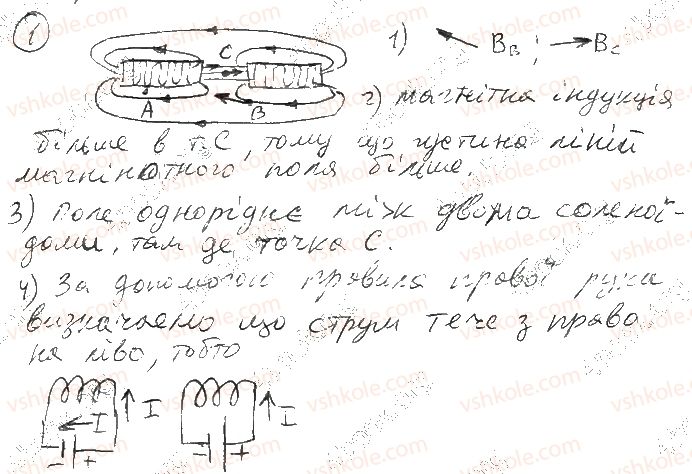 1
C
A
B
1) B_B ; B_C
2) магнітна індукція
більше в т. С, тому що густина ліній
магнінотного поля більше.
3) Поле однорідне між двома солена-
дами, там де точка С.
4) За допомогою правила правої руки
визначаємо що струм тече з право
на ліво, тобто
I I I
- + - +
vshkole.com